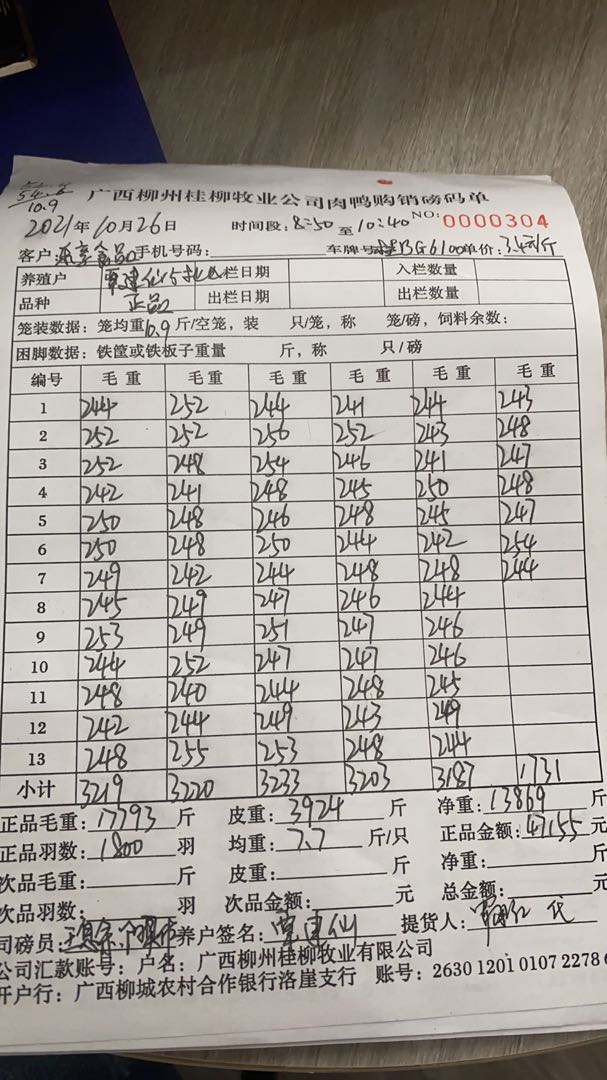 54.6
10.9
广西柳州桂柳牧业公司肉鸭购销磅码单
2021年10月26日 时间段:8:50至10:40 NO:0000304
客户:食品 手机号码: 车牌号:BG6100 单价:3.4元/斤
养殖户 覃建仙 入栏日期 入栏数量
品种 正品 出栏日期 出栏数量
笼装数据:笼均重10.9斤/空笼,装 只/笼,称 笼/磅,饲料余数:
困脚数据:铁筐或铁板子重量 斤,称 只/磅
编号 毛重 毛重 毛重 毛重 毛重 毛重
1 244 252 244 241 244 243
2 252 252 256 252 243 248
3 252 248 254 246 241 247
4 242 241 248 245 250 248
5 250 248 246 248 245 247
6 250 248 250 244 242 254
7 249 242 244 248 248 244
8 245 249 247 246 244
9 253 249 251 247 246
10 244 252 247 247 246
11 248 240 244 248 245
12 242 244 249 243 249
13 248 255 253 248 244
小计 3219 3220 3233 3203 3187 1731
正品毛重:17793斤 皮重:3924斤 净重:13869斤
正品羽数:1800羽 均重:7.7斤/只 正品金额:47155元
次品毛重: 斤 皮重: 斤 净重: 斤
次品羽数: 羽 次品金额: 元 总金额: 元
司磅员: 养户签名:覃建仙 提货人:
公司汇款账号:户名:广西柳州桂柳牧业有限公司
开户行:广西柳城农村合作银行洛崖支行 账号:2630 1201 0107 2278 6